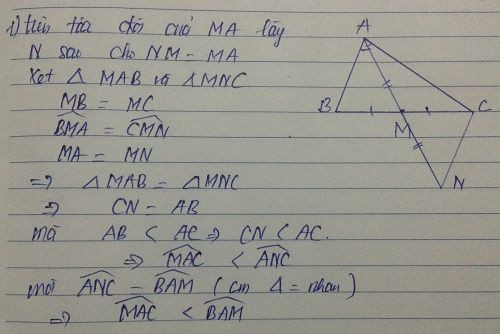 1) trên tia đối của MA lấy
N sao cho NM = MA
Xét △ MAB và △MNC
MB = MC
\widehat{BMA} = \widehat{CMN}
MA = MN
=> △MAB = △MNC
=> CN = AB
mà AB < AC => CN < AC.
=> \widehat{MAC} < \widehat{ANC}
mà \widehat{ANC} = \widehat{BAM} (cm △ = nhau)
=> \widehat{MAC} < \widehat{BAM}
A
B
C
M
N